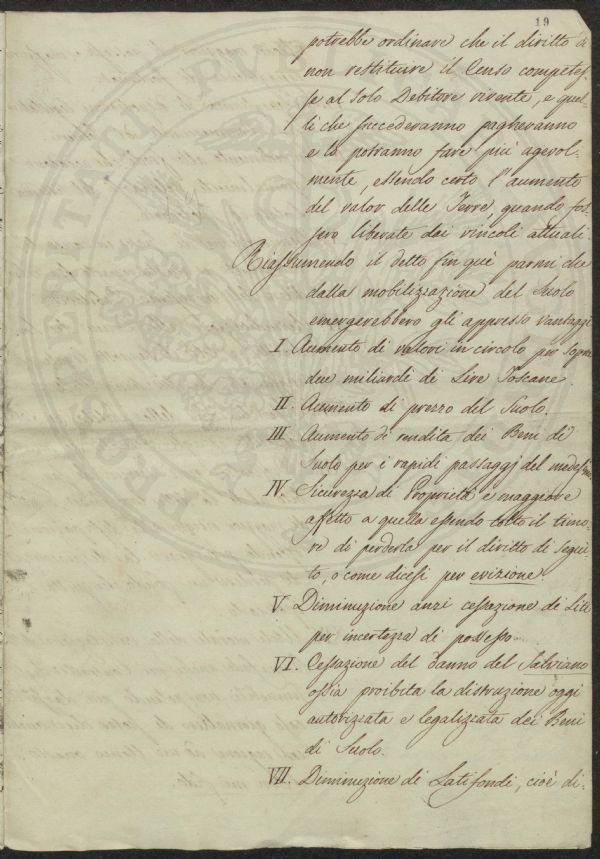 19
potrebbe ordinare che il diritto a
non restituire il Censo competes-
se al solo Debitore vivente, e quel-
li che succederanno pagheranno
e lo potranno fare più agevol-
mente, essendo certo l'aumento
del valor delle Terre, quando fos-
sero liberate dai vincoli attuali
Riassumendo il detto fin quì parmi che
dalla mobilizzazione del Suolo
emergerebbero gli appresso vantaggi
I. Aumento di valori in circolo per sopra
due miliardi di Lire Toscane.
II. Aumento di prezzo del Suolo.
III. Aumento di rendita dei Beni di
Suolo per i rapidi passaggj del medesimo
IV. Sicurezza di Proprietà e maggiore
affetto a quella essendo tolto il timo-
re di perderla per il diritto di segui-
to, o come dicesi per evizione.
V. Diminuzione anzi cessazione di Liti
per incertezza di possesso.
VI. Cessazione del danno del Salviano
ossia proibita la distruzione oggi
autorizzata e legalizzata dei Beni
di Suolo.
VII. Diminuzione di Latifondi, cioè di-